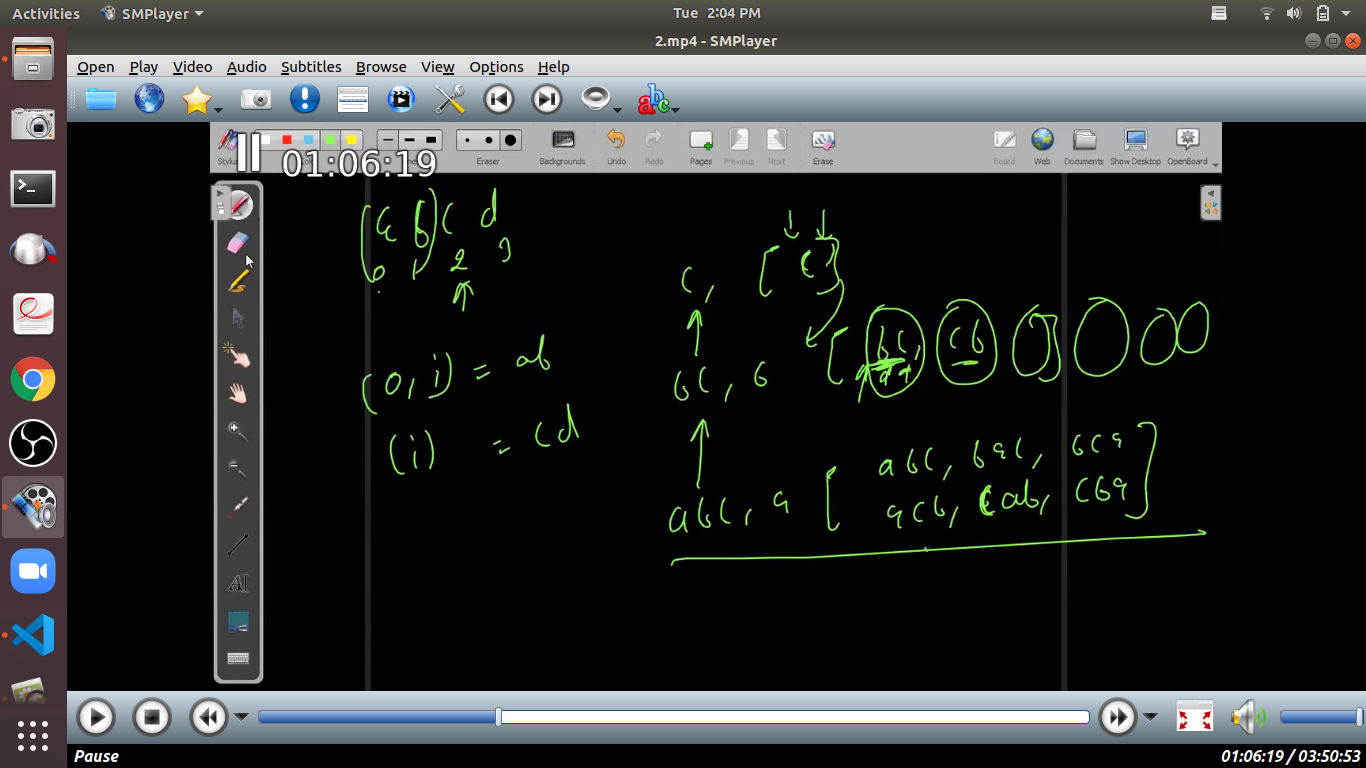 Activities SMPlayer Tue 2:04 PM
2.mp4 - SMPlayer
Open Play Video Audio Subtitles Browse View Options Help
Stylus Eraser Backgrounds Undo Redo Pages Previous Next Erase Board Web Documents Show Desktop OpenBoard
01:06:19
(a b) c d
0 1 2 3
c, [ c ]
(0, i) = ab
bc, b [ bc, cb ]
(i) = cd
abc, bac, bca
abc, a [ acb, cab, cba ]
AI
Pause 01:06:19 / 03:50:53